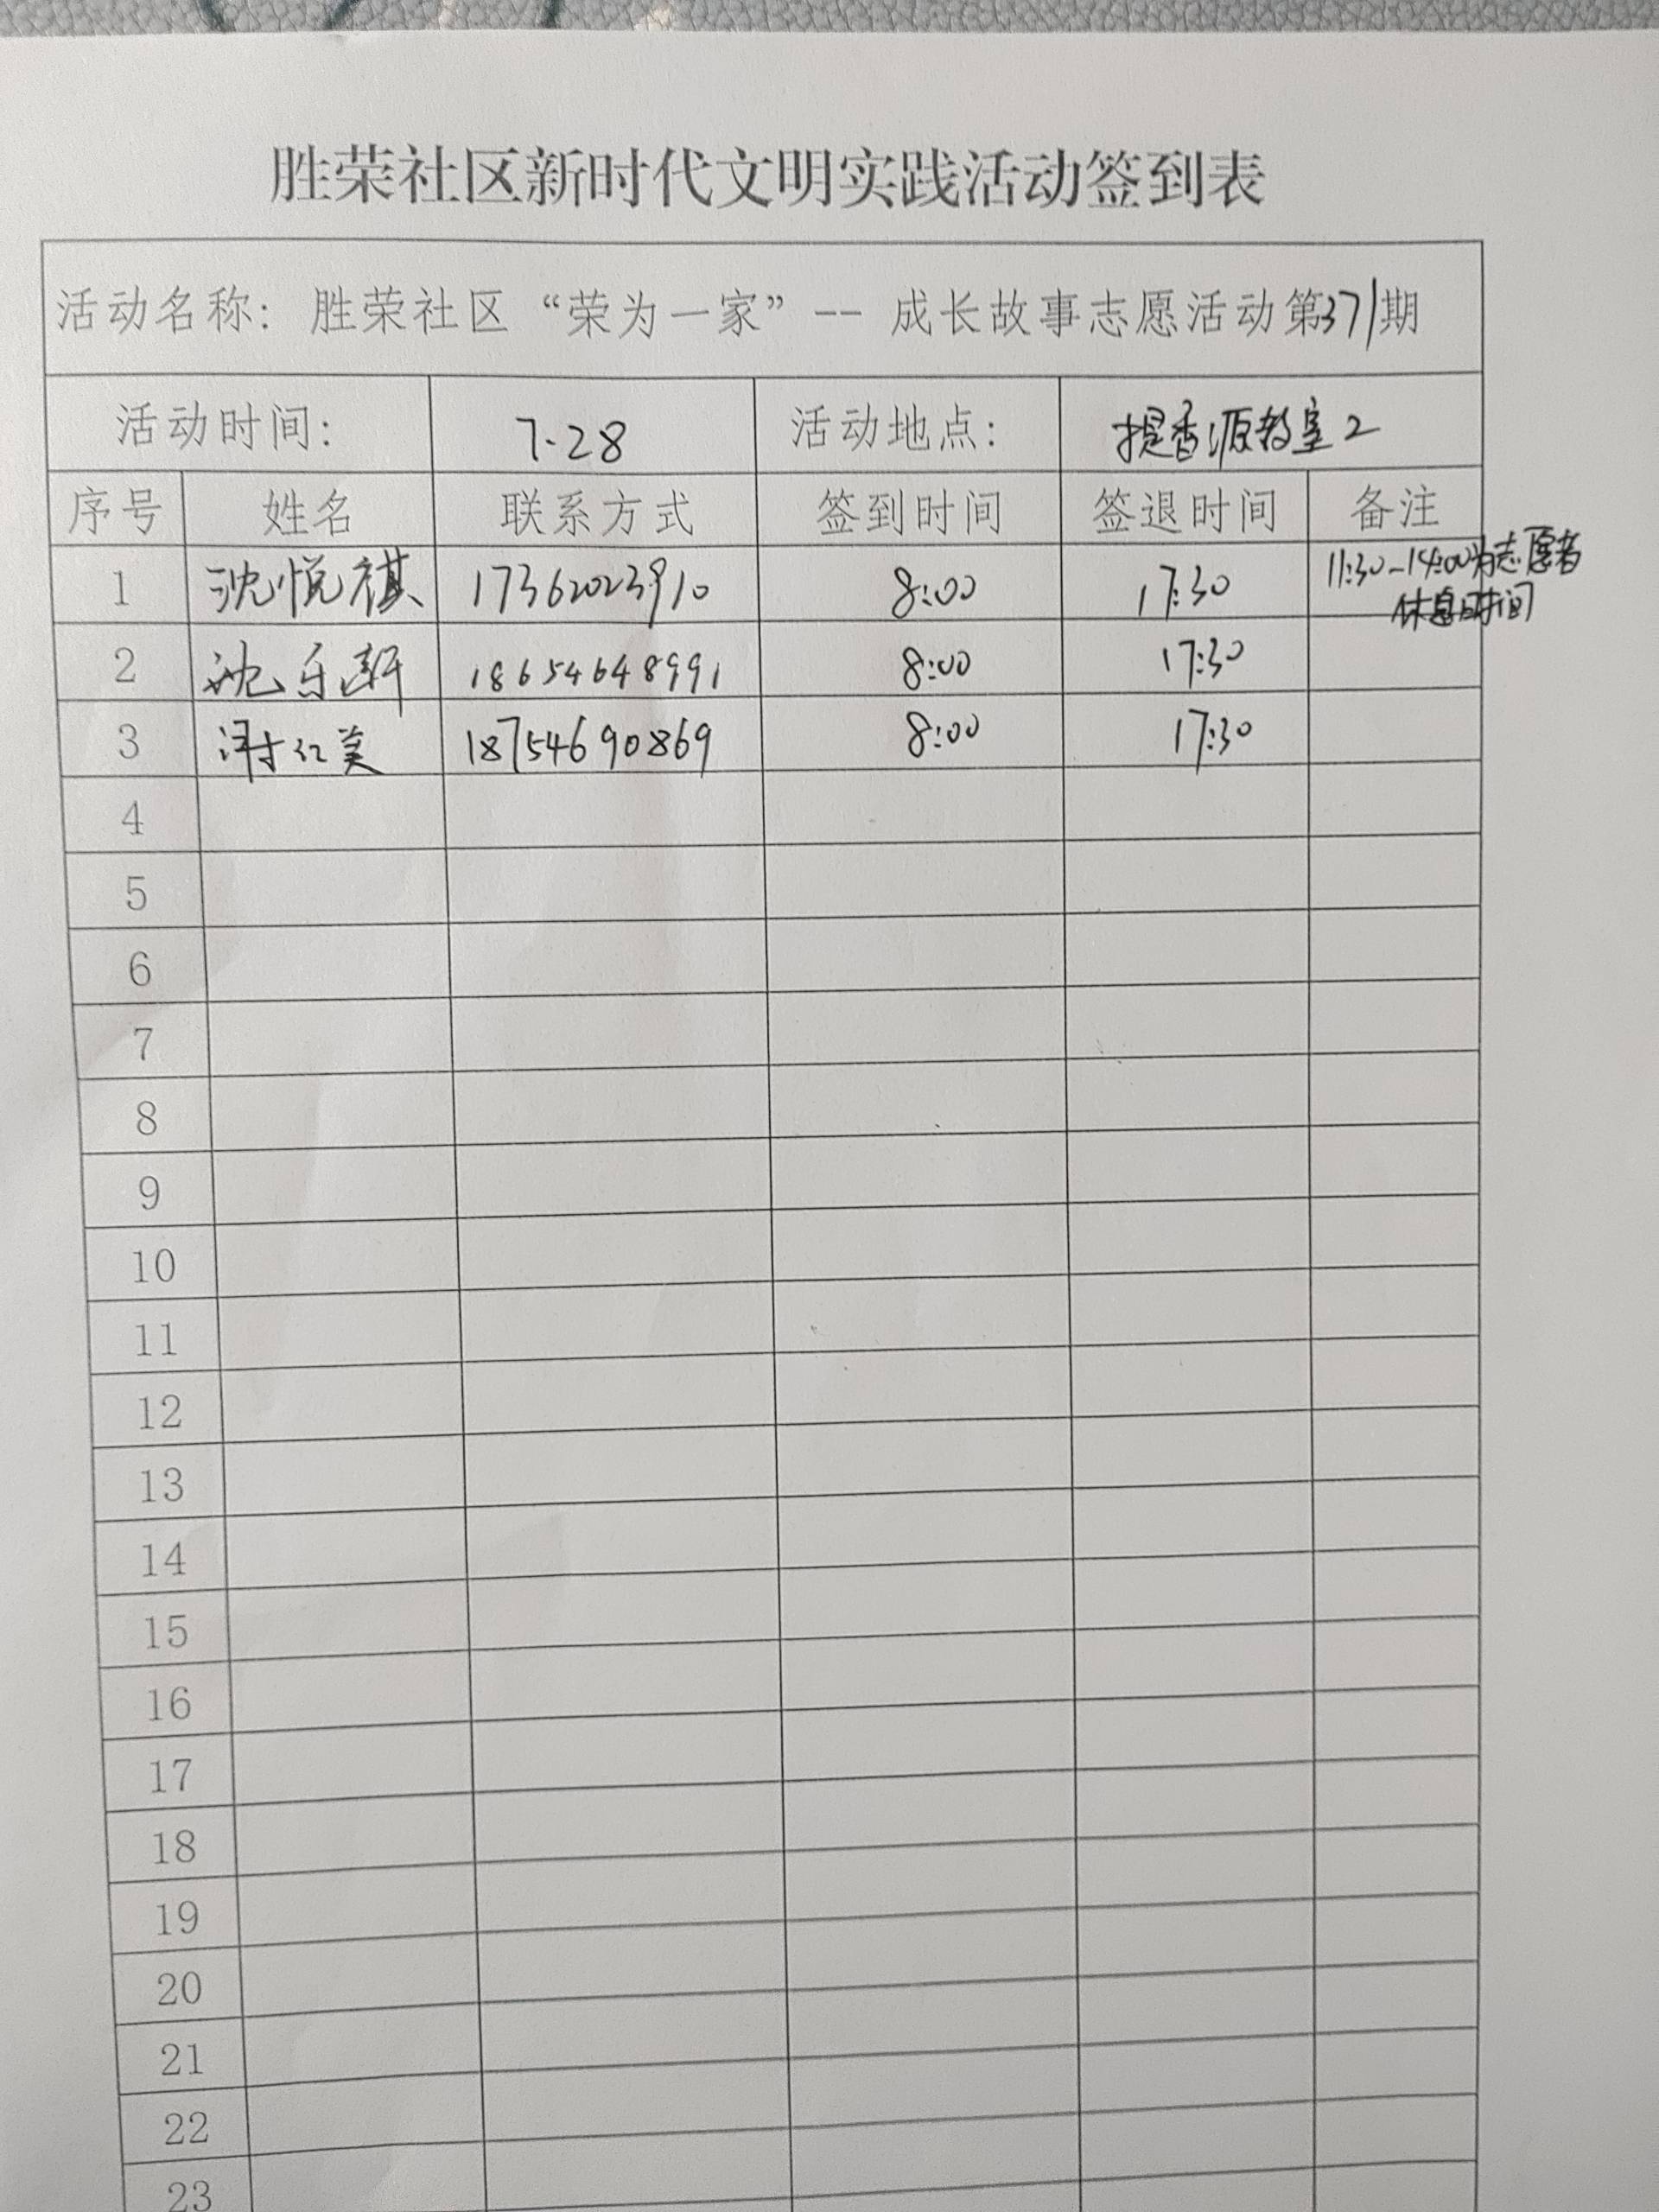 胜荣社区新时代文明实践活动签到表
活动名称：胜荣社区“荣为一家”-- 成长故事志愿活动第371期
活动时间： 7.28 活动地点： 提香源教室2
序号 姓名 联系方式 签到时间 签退时间 备注
1 沈悦祺 17362023910 8:00 17:30 11:30-14:00为志愿者
休息时间
2 沈乐 18654648991 8:00 17:30
3 红美 18754690869 8:00 17:30
4
5
6
7
8
9
10
11
12
13
14
15
16
17
18
19
20
21
22
23